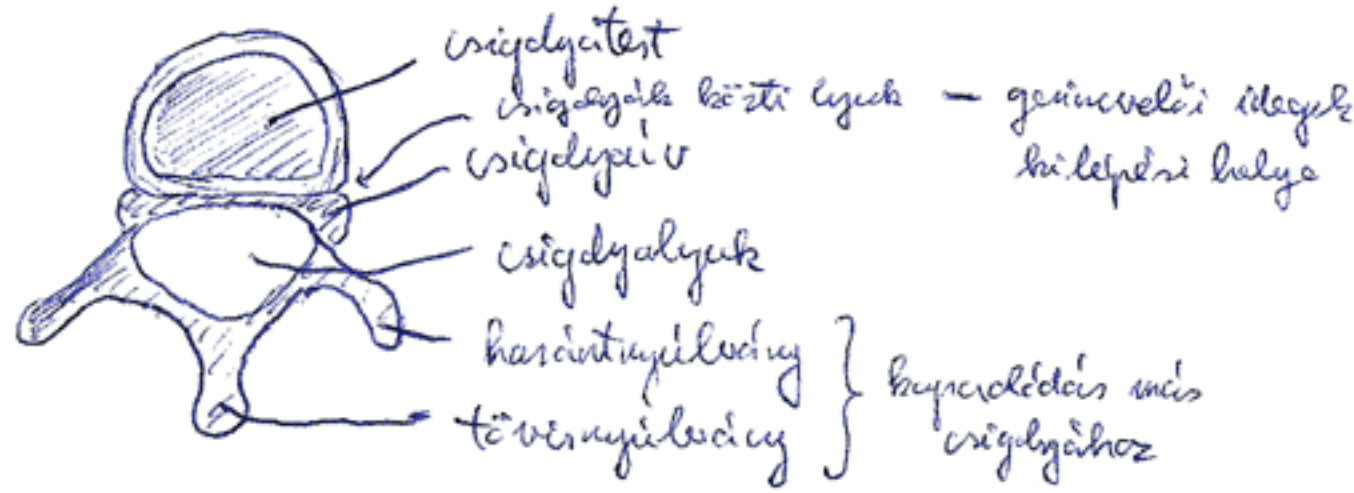 csigolyatest
csigolyák közti lyuk – gerincvelői idegek
kilépési helye
csigolyaív
csigolyalyuk
harántnyúlvány
tövisnyúlvány
kapcsolódás más
csigolyához